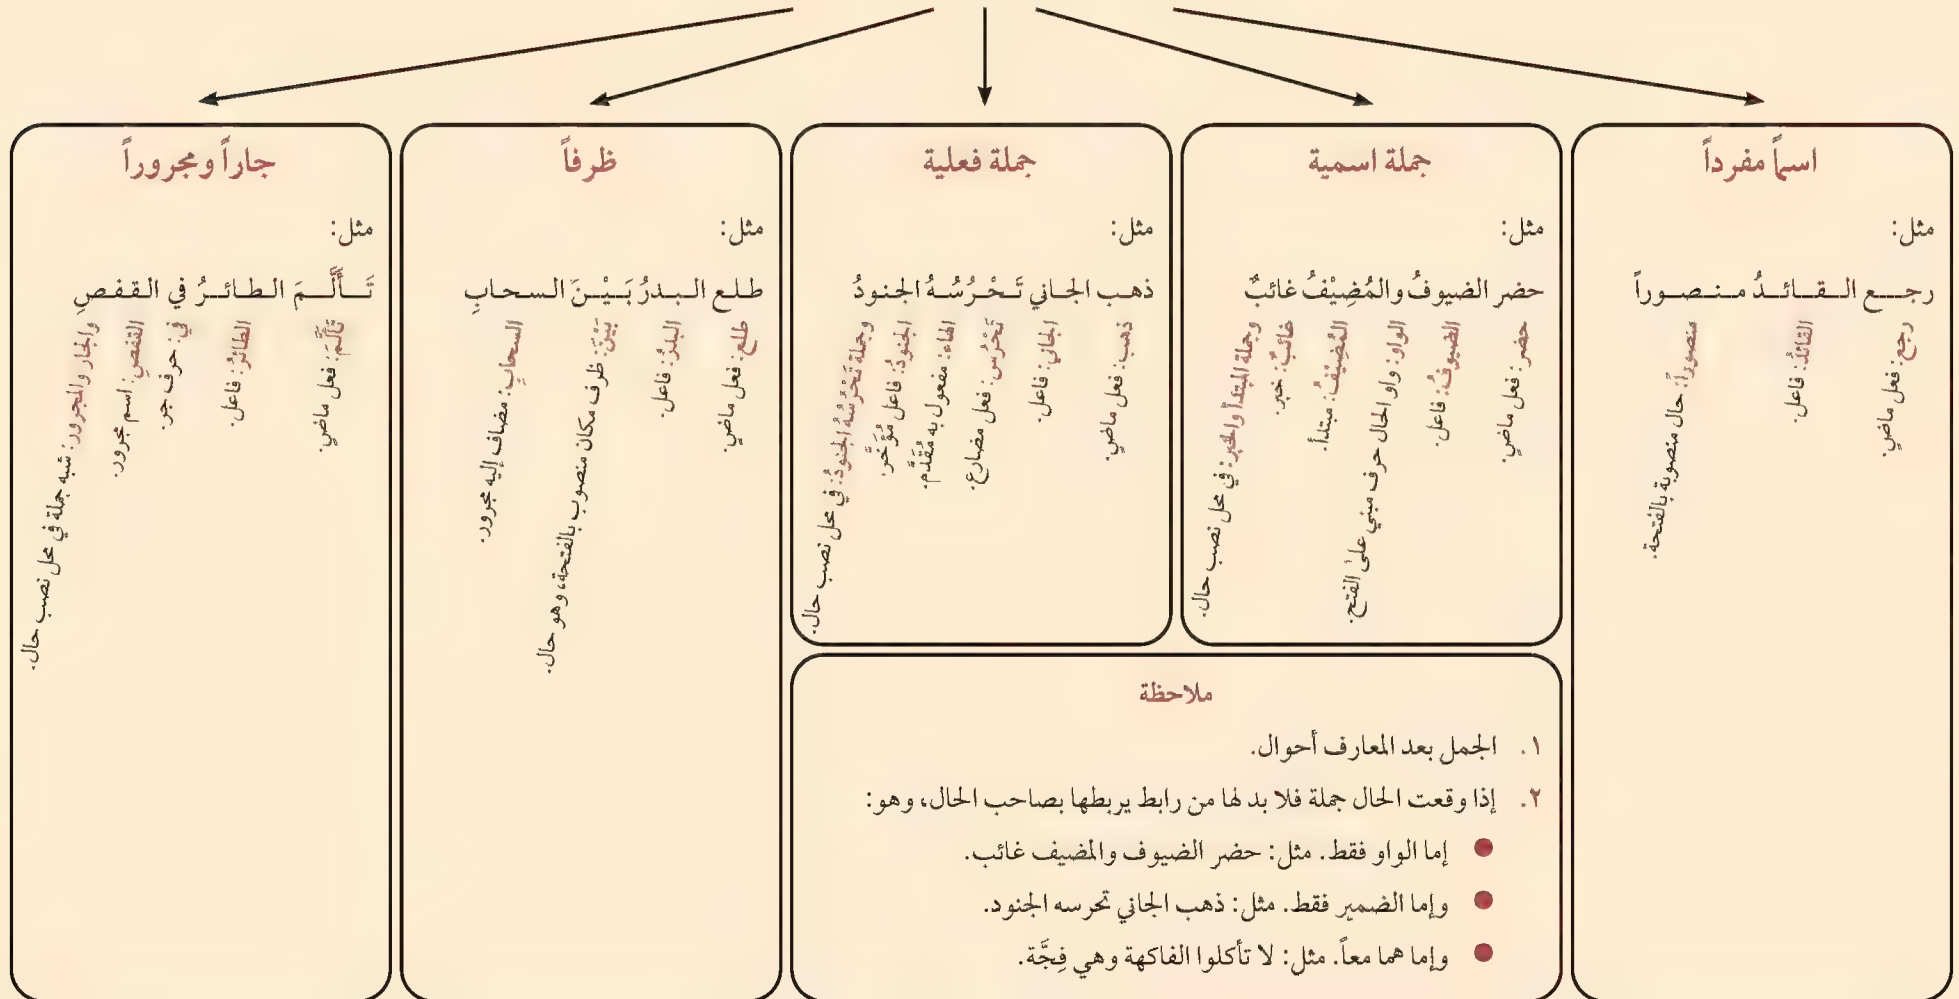 اسماً مفرداً
مثل:
رجع القائدُ منصوراً
رجع: فعل ماضي.
القائدُ: فاعل.
منصوراً: حال منصوبة بالفتحة.
جملة اسمية
مثل:
حضر الضيوفُ والمُضِيْفُ غائبٌ
حضر: فعل ماضي.
الضيوفُ: فاعل.
الواو: واو الحال حرف مبني على الفتح.
المُضِيْفُ: مبتدأ.
غائبٌ: خبر.
وجملة المبتدأ والخبر: في محل نصب حال.
جملة فعلية
مثل:
ذهب الجاني تَحْرُسُهُ الجنودُ
ذهب: فعل ماضي.
الجاني: فاعل.
تَحْرُس: فعل مضارع.
الهاء: مفعول به مُقَدَّم.
الجنودُ: فاعل مُؤَخَّر.
وجملة تَحْرُسُهُ الجنودُ: في محل نصب حال.
ظرفاً
مثل:
طلع البدرُ بَيْنَ السحابِ
طلع: فعل ماضي.
البدرُ: فاعل.
بَيْنَ: ظرف مكان منصوب بالفتحة، وهو حال.
السحابِ: مضاف إليه مجرور.
جاراً ومجروراً
مثل:
تَأَلَّمَ الطائرُ في القفصِ
تَأَلَّمَ: فعل ماضي.
الطائرُ: فاعل.
في: حرف جر.
القفصِ: اسم مجرور.
والجار والمجرور: شبه جملة في محل نصب حال.
ملاحظة
١. الجمل بعد المعارف أحوال.
٢. إذا وقعت الحال جملة فلا بد لها من رابط يربطها بصاحب الحال، وهو:
● إما الواو فقط. مثل: حضر الضيوف والمضيف غائب.
● وإما الضمير فقط. مثل: ذهب الجاني تحرسه الجنود.
● وإما هما معاً. مثل: لا تأكلوا الفاكهة وهي فِجَّة.